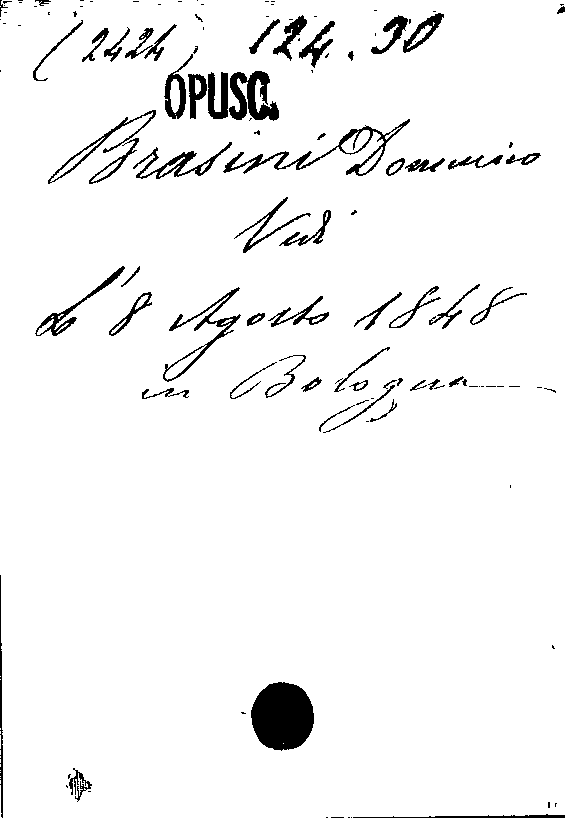 (2424) 124.90
OPUSC.
Brasini Domenico
Vedi
L'8 Agosto 1848
in Bologna